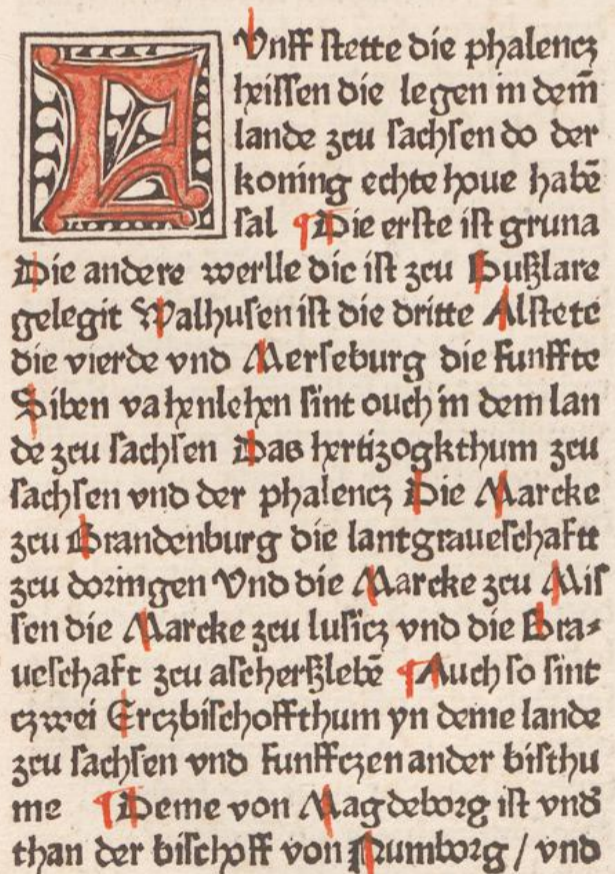 Vnff stette die phalencz
heissen die legen in dem̄
lande zcu sachsen do der
koning echte houe habē
sal ¶ Die erste ist gruna
Die andere werlle dic ist zcu Bußlare
gelegit Walhusen ist die dritte Alstete
die vierde vnd Merseburg die funffte
Siben vahenlehen sint ouch in dem lan
de zcu sachsen Das hertizogkthum zcu
sachsen vnd der phalencz Die Marcke
zcu Brandenburg die lantgraueschaftt
zcu doringen Vnd die Marcke zcu Mis
sen die Marcke zcu lusicz vnd die Gra⸗
ueschaft zcu ascherßlebē ¶ Auch so sint
czwei Erczbischoffthum yn deme lande
zcu sachsen vnd funffczen ander bisthu
me ¶ Deme von Magdeborg ist vnd̄
than der bischoff von Numborg / vnd